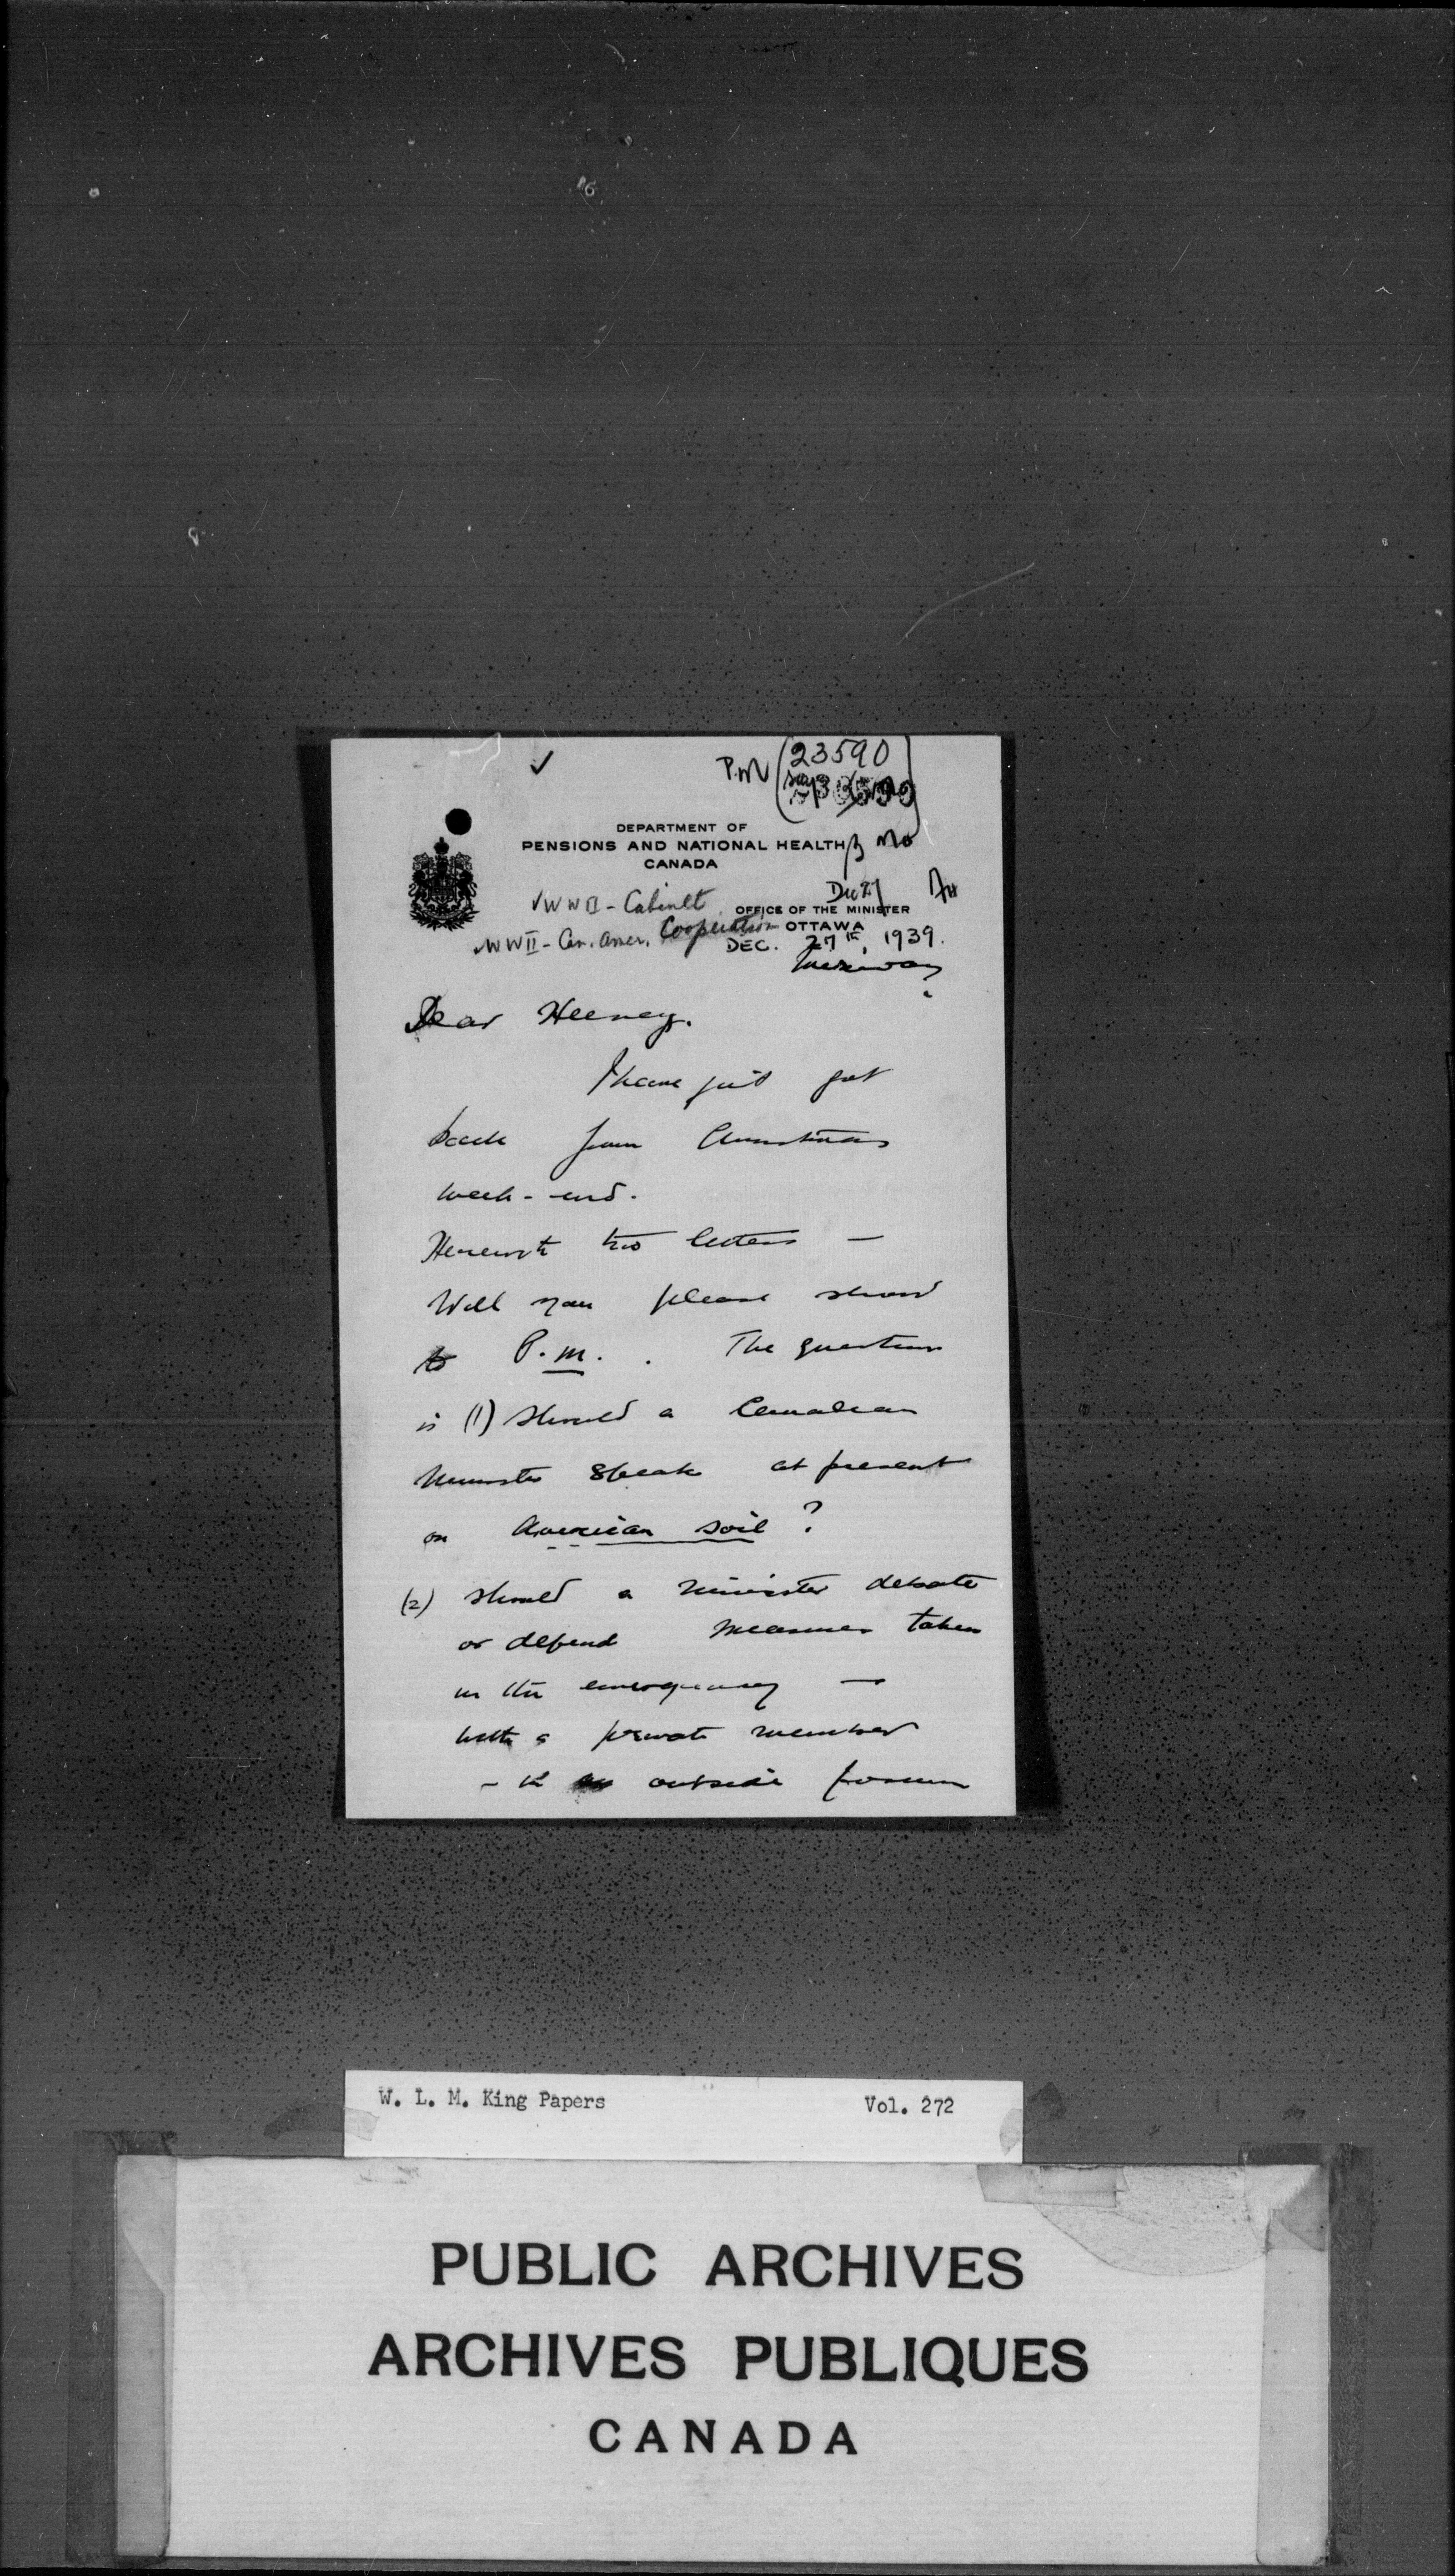 ✓
P.M (23590)
DEPARTMENT OF
PENSIONS AND NATIONAL HEALTH
CANADA
Dec 27
✓WWII - Cabinet
OFFICE OF THE MINISTER
✓WWII - Can. Amer. Cooperation
OTTAWA
DEC. 27th, 1939.
Dear Heeney.
I have just got
back from Christmas
week-end.
Herewith two letters —
Will you please show
to P.M. . The question
is (1) Should a Canadian
Minister speak at present
on American soil ?
(2) should a Minister debate
or defend measures taken
in the emergency —
with a private member
- in outside forum
W. L. M. King Papers
Vol. 272
PUBLIC ARCHIVES
ARCHIVES PUBLIQUES
CANADA